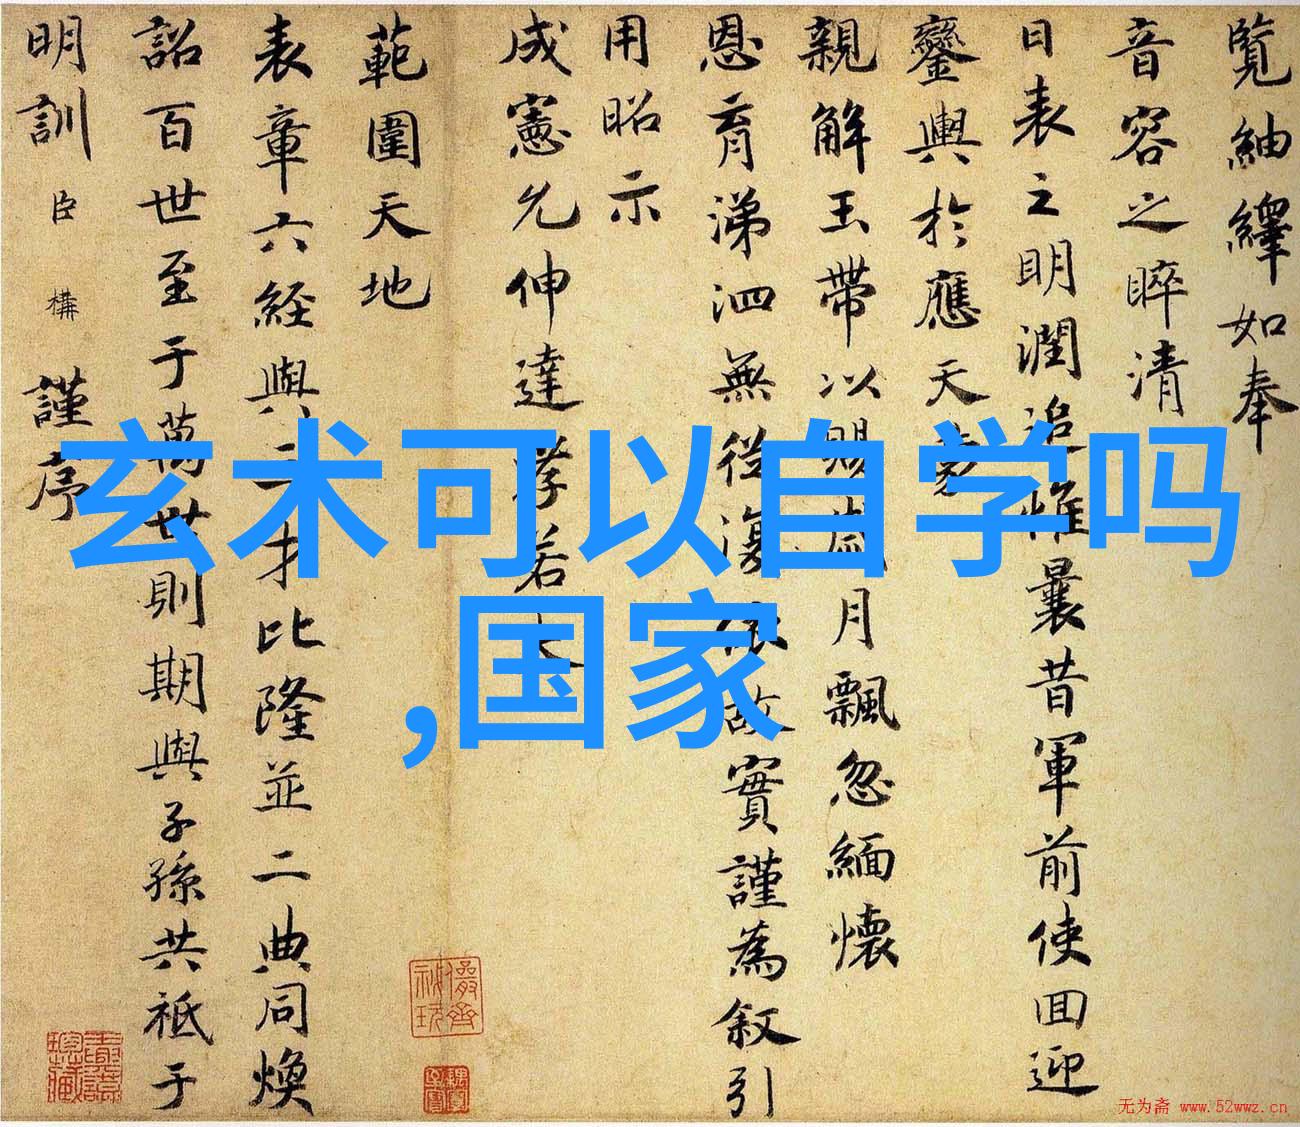 覧紬繹如奉
音容之睟清
日表之明潤追惟曩昔軍前使回迎
鑾輿於應天
親解玉帶以賜歲月飄忽緬懷
恩育涕泗無從復依故實謹為叙引
用昭示
成憲允伸達孝若
範圍天地
表章六經與二才比隆並二典同煥
詔百世至于萬世則期與子孫共祗于
明訓臣構謹序
玄术可以自学吗
,国家
无为斋 www.52wwz.cn